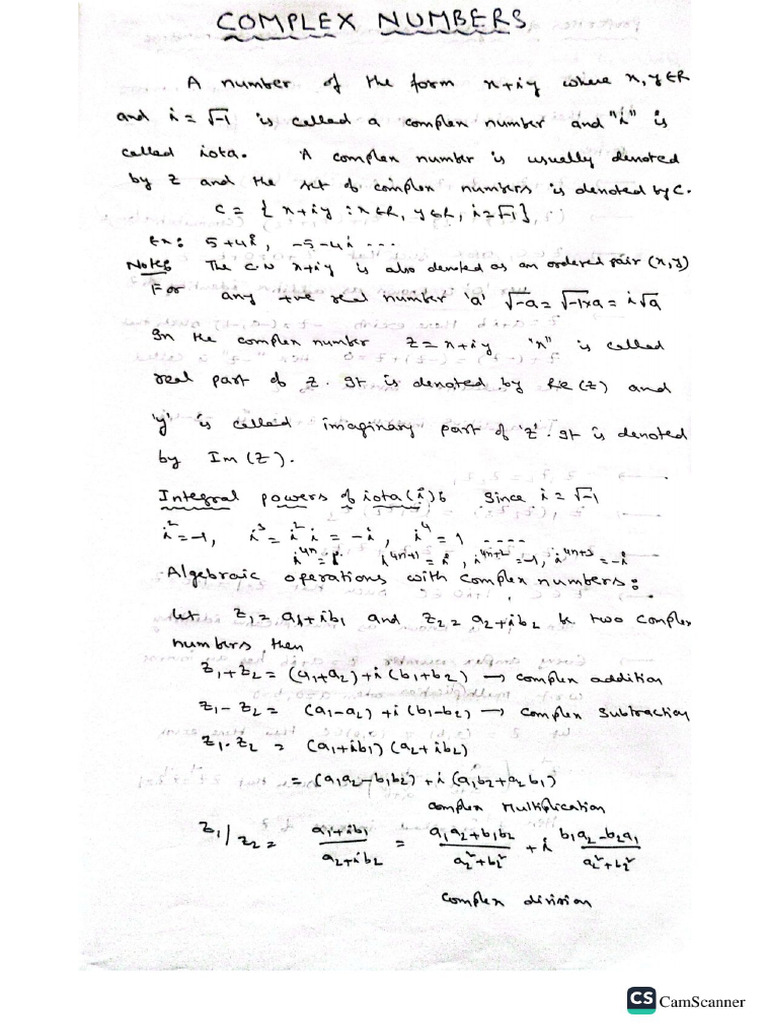 COMPLEX NUMBERS
A number of the form x+iy where x, y ∈ R
and i = √-1 is called a complex number and "i" is
called iota. A complex number is usually denoted
by Z and the set of complex numbers is denoted by C.
C = { x+iy : x∈R, y∈R, i=√-1 }
Ex: 5+4i, -5-4i ...
Note: The C.N x+iy is also denoted as an ordered pair (x,y)
For any +ve real number 'a' √-a = √-1×a = i√a
In the complex number Z = x+iy "x" is called
real part of Z. It is denoted by Re(Z) and
'y' is called imaginary part of 'Z'. It is denoted
by Im(Z).
Integral powers of iota(i): Since i = √-1
i² = -1, i³ = i² i = -i, i⁴ = 1 ----
i⁴ⁿ = 1, i⁴ⁿ⁺¹ = i, i⁴ⁿ⁺² = -1, i⁴ⁿ⁺³ = -i
Algebraic operations with complex numbers:
Let Z₁ = a₁+ib₁ and Z₂ = a₂+ib₂ be two complex
numbers, then
Z₁+Z₂ = (a₁+a₂)+i(b₁+b₂) → complex addition
Z₁-Z₂ = (a₁-a₂)+i(b₁-b₂) → complex subtraction
Z₁·Z₂ = (a₁+ib₁)(a₂+ib₂)
= (a₁a₂-b₁b₂)+i(a₁b₂+a₂b₁)
complex Multiplication
Z₁/Z₂ = (a₁+ib₁)/(a₂+ib₂) = (a₁a₂+b₁b₂)/(a₂²+b₂²) + i (b₁a₂-b₂a₁)/(a₂²+b₂²)
complex division
CS CamScanner